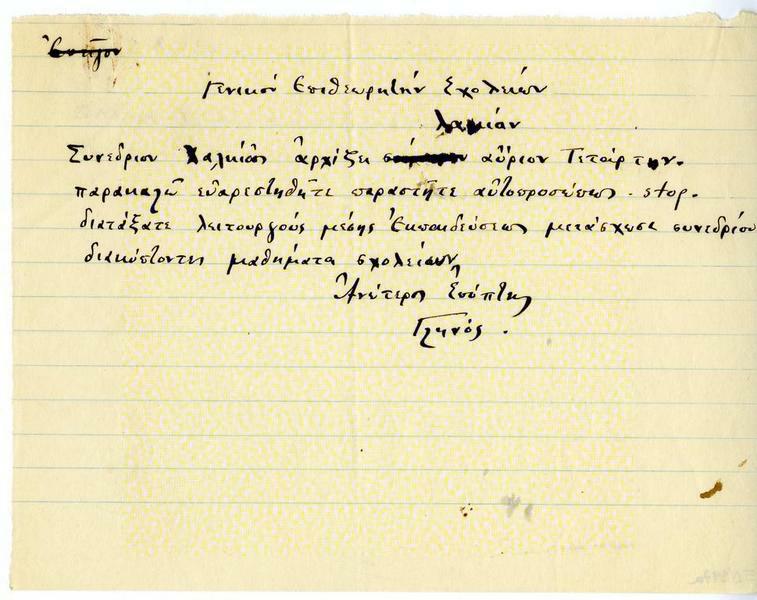 Γενικὸν Ἐπιθεωρητήν Σχολείων
Λαμίαν
Συνέδριον Χαλκίδος ἀρχίζει αὔριον Τετάρτην.
παρακαλῶ εὐαρεστηθῆτε παραστῆτε αὐτοπροσώπως. stop.
διατάξατε λειτουργούς μέσης Ἐκπαιδεύσεως μετάσχωσι συνεδρίου
διακόπτοντες μαθήματα σχολείων
Ἀνώτερος Ἐπόπτης
Γληνός.